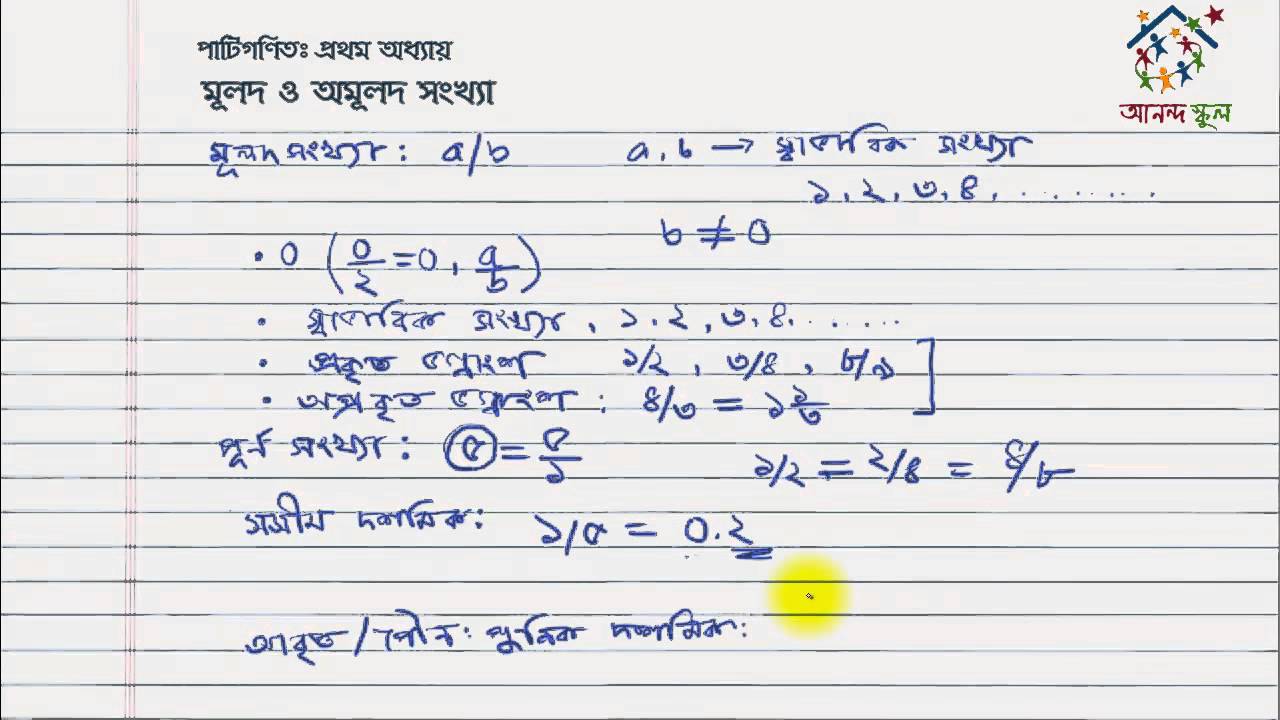 পাটিগণিতঃ প্রথম অধ্যায়
মূলদ ও অমূলদ সংখ্যা
আনন্দ স্কুল
মূলদ সংখ্যা: a/b a, b → স্বাভাবিক সংখ্যা
১, ২, ৩, ৪, .........
b ≠ 0
• 0 (0/২ = 0, a/b)
• স্বাভাবিক সংখ্যা, ১, ২, ৩, ৪, ......
• প্রকৃত ভগ্নাংশ ১/২, ৩/৪, ৮/৯ ]
• অপ্রকৃত ভগ্নাংশ: ৪/৩ = ১ ১/৩
পূর্ন সংখ্যা: ৫ = ৫/১
১/২ = ২/৪ = ৪/৮
সসীম দশমিক: ১/৫ = 0.২
আবৃত্ত / পৌন:পুনিক দশমিক: